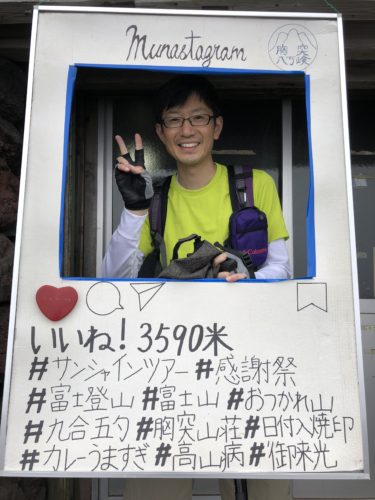 Munastagram
胸突
八丁
いいね! 3590米
#サンシャインツアー #感謝祭
#富士登山 #富士山 #おつかれ山
#九合五勺 #胸突山荘 #日付入焼印
#カレーうますぎ #高山病 #御来光
Columbia